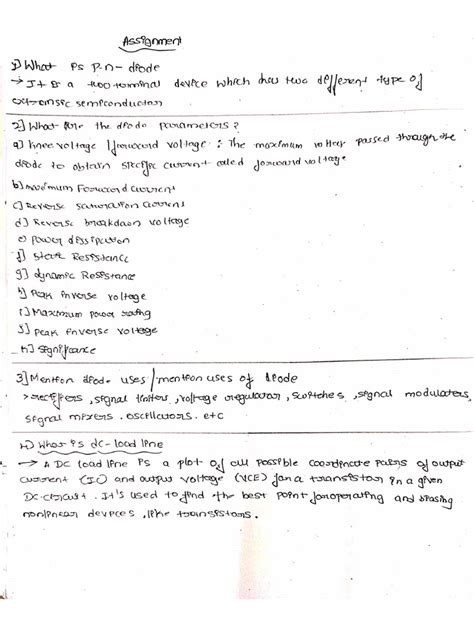 Assignment
1) What is p-n-diode
→ It is a two terminal device which has two different type of
extrinsic semiconductor
2] What are the diode parameters?
a) knee voltage / forward voltage : The maximum voltage passed through the
diode to obtain specific current called forward voltage
b) maximum Forward current
c) Reverse saturation current
d) Reverse breakdown voltage
e) power dissipation
f) static Resistance
g) dynamic Resistance
h) Peak inverse voltage
i) Maximum power rating
j) peak inverse voltage
k) significance
3] Mention diode uses / mention uses of diode
> rectifiers, signal limiters, voltage regulator, switches, signal modulators,
signal mixers. oscillators. etc
4) What is dc-load line
→ A DC load line is a plot of all possible coordinate pairs of output
current (IC) and output voltage (VCE) for a transistor in a given
DC-circuit. It's used to find the best point for operating and biasing
nonlinear devices, like transistors.